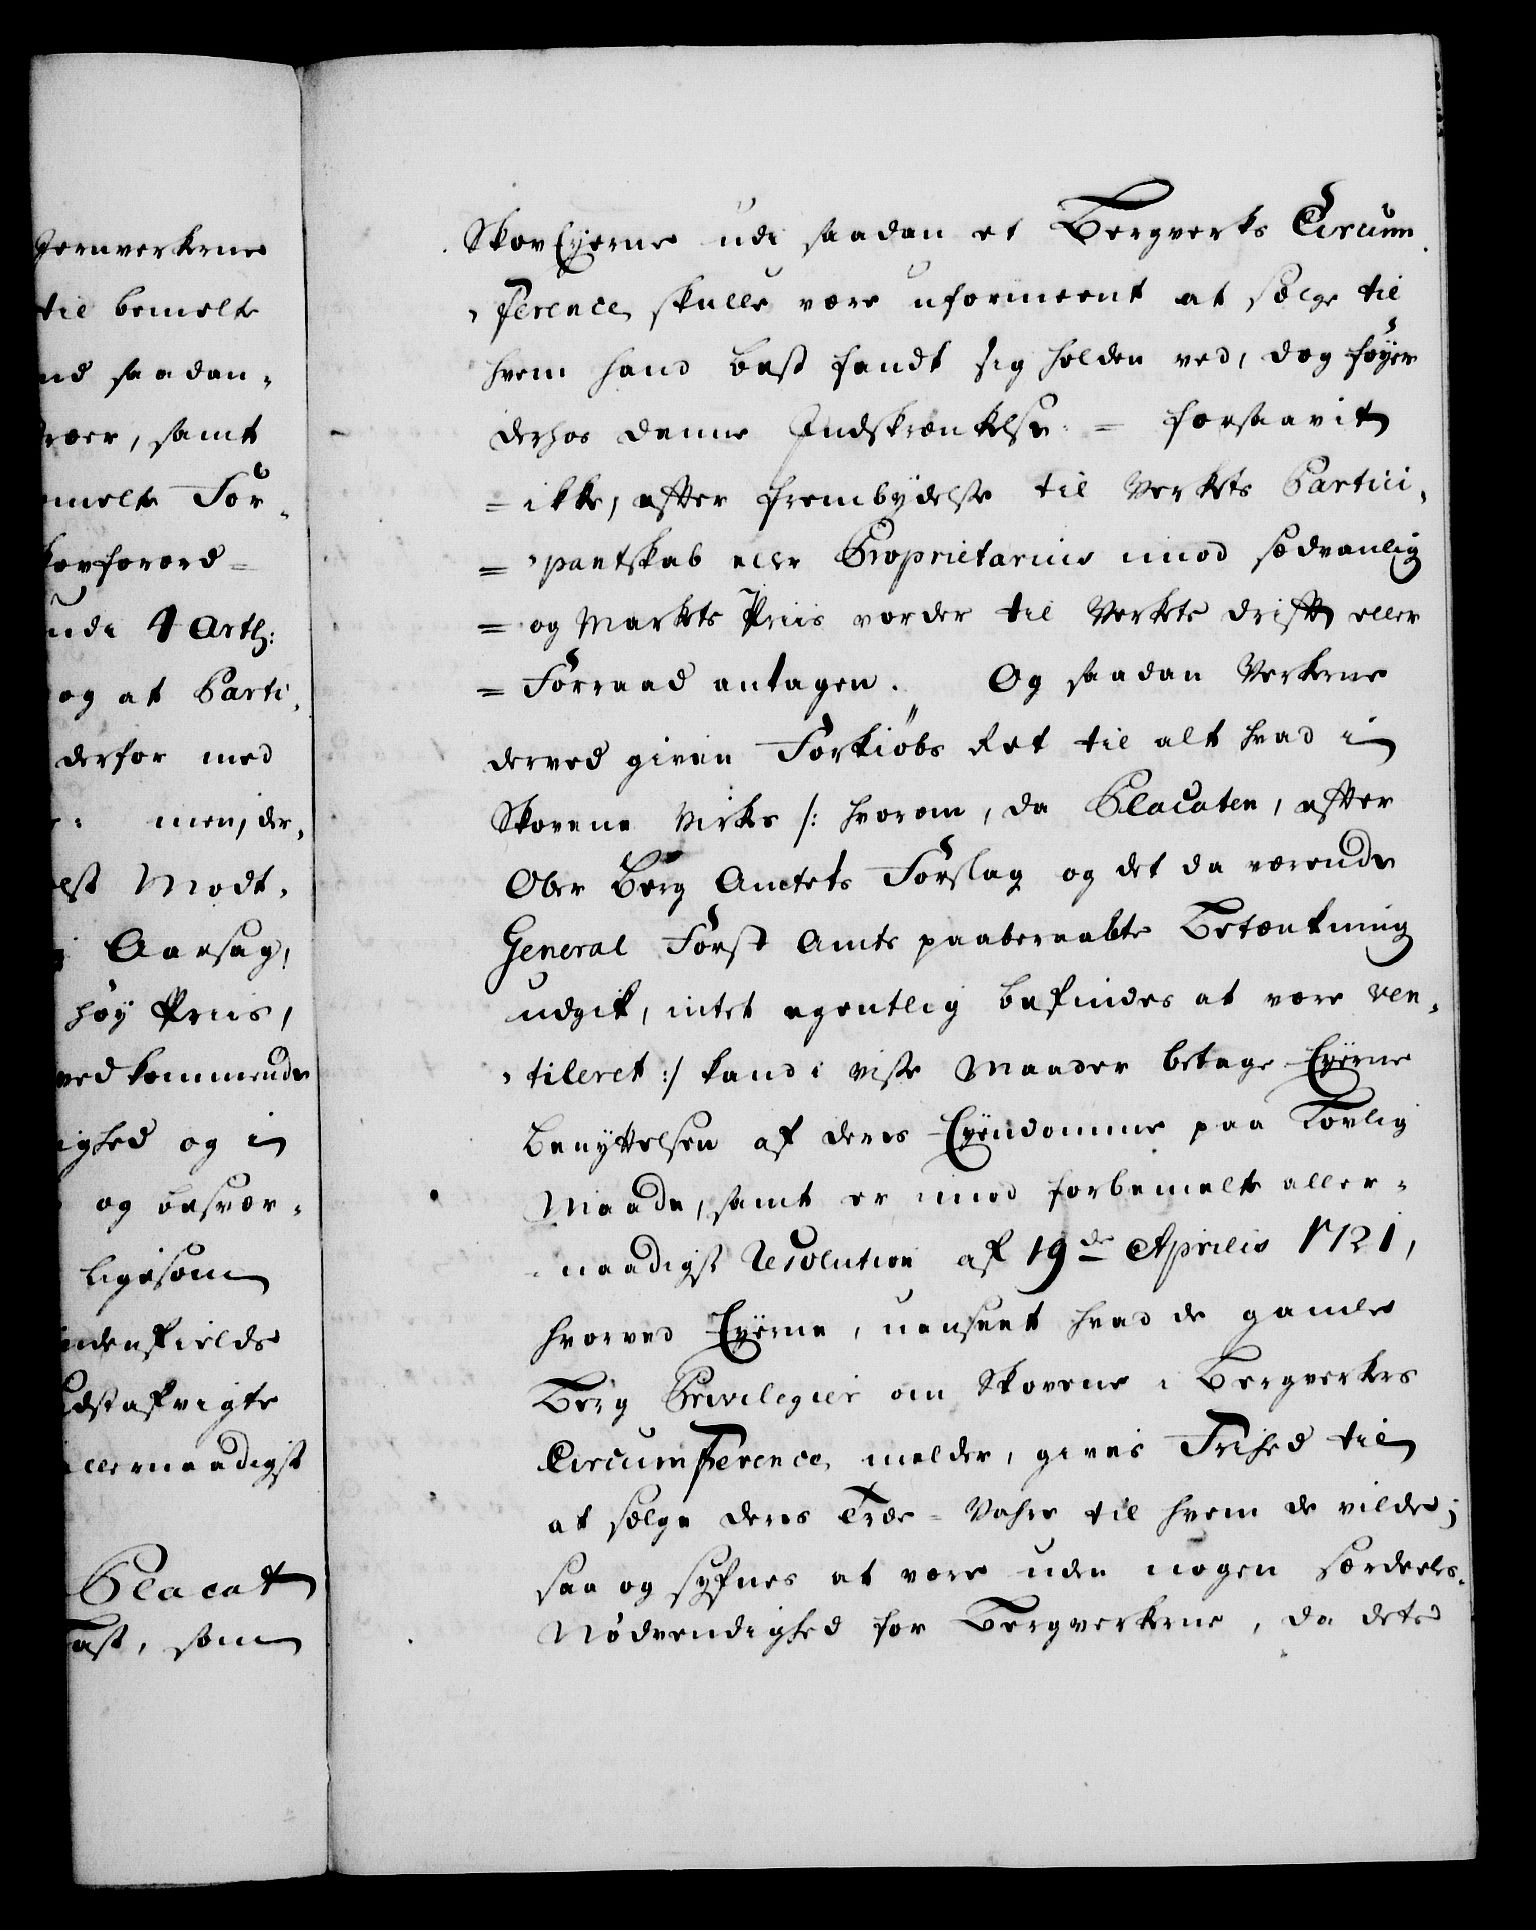 Jernverkerne
til bemelte
nd saadan-
roer, samt
melte For-
kovforord-
udi 4 Arth:
og at Parti-
derfor med
men, der-
elst Modt-
Aarsag,
høy Priis,
vedkommende
ighed og i
og besvær-
ligesom
ndenfields
dstafvigte
allernaadigst
Placat
ast, som
SkovEyerne udi saadan et Bergverks Circum-
-ference, skulle være uformeent at sælge til
hvem hand best fandt sig holden ved, dog føyer
derhos denne Indskrænkelse: = forsaavit
= ikke, efter frembydelse til Verkets Partici-
= -pantskab eller Proprietarius imod sædvanlig
= og Markets Priis vorder til Verkets drift eller
= Forraad antagen. Og saadan Verkerne
derved given Forkiøbs Ret til alt hvad i
Skovene Virkes /: hvorom, da Placaten, efter
Ober Berg Amtets Forslag og det da værende
General Forst Amts paaberaabte Betænkning
udgik, intet egentlig befindes at være ven-
-tileret :/ kand i visse Maader betage Eyerne
Benyttelsen af deres Eyendomme paa Lovlig
Maade, samt er imod forbemelte aller-
-naadigst Resolution af 19de Aprilis 1721,
hvorved Eyerne, uanseet hvad de gamle
Berg Privilegier om Skovene i Bergverkers
Circumference, melder, gives Frihed til
at sælge deres Træe-Vahre til hvem de vilde;
saa og syfnes at være uden nogen særdeels
Nødvendighed for Bergverkerne, da dets